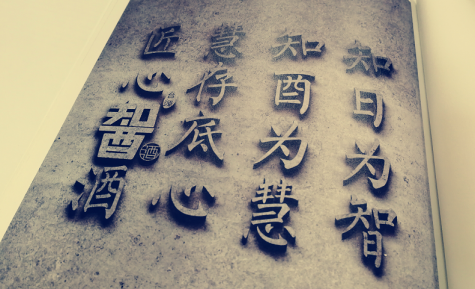 知日为智
知酉为慧
慧存底心
匠心酒
酒